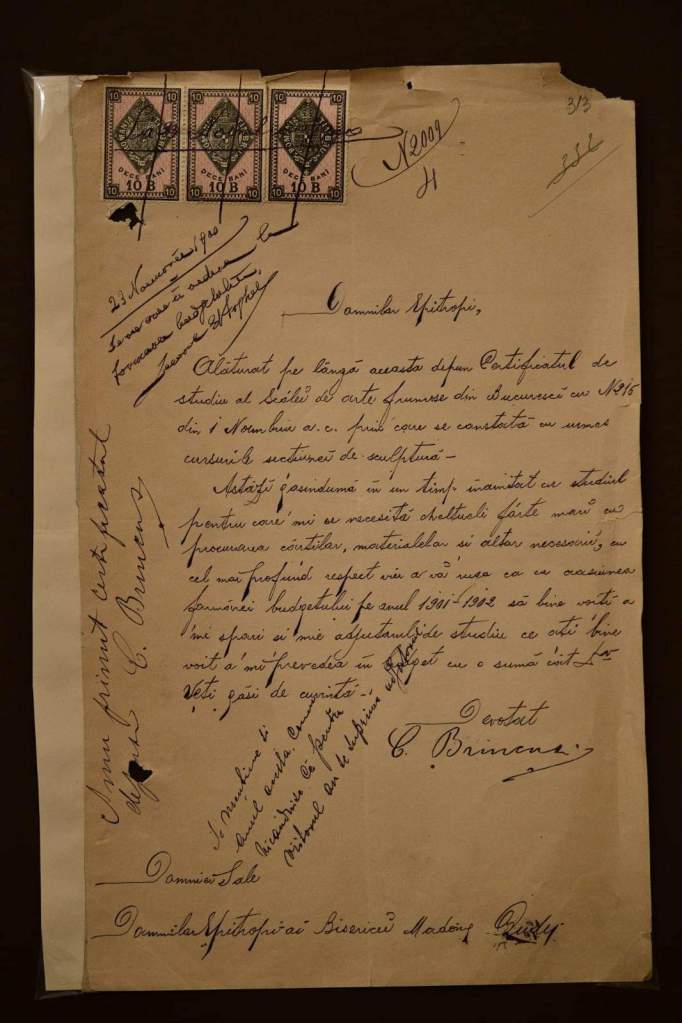 10 10 10 10 10 10
DECE BANI DECE BANI DECE BANI
10 B 10 B 10 B
10 10 10 10 10 10
N 2009
4
313
23 Noemvrie 1900
se va avea în vedere la
formarea budgetului
Domnilor Epitropi,
Alăturat pe lângă aceasta depun Certificatul de
studiu al Scólei de arte frumose din Bucurescĭ cu No 215
din 1 Noembrie a.c. prin care se constată cu urmez
cursurile secțiunei de sculptură –
Astăzĭ găsindumă în un timp înaintat cu studiul
pentru care mi se necesită cheltueli fórte marĭ cu
procurarea cărtilor, materialelor si altor necesariĭ, cu
cel mai profund respect viu a vă ruga ca cu ocasiunea
formărei budgetului pe anul 1901-1902 să bine voiti a
'mi spori si mie adjutorul de studiu ce ati bine
voit a 'mi prevedea în buget cu o sumă cât
Veți găsi de cuviintă –
Devotat
C. Brincus
Amu primit certificatul
depus C. Brincus
Se mentine si
anul acesta
că pentru
viitorul an se suprimă
Domniei Sale
Domnilor Epitropi ai Bisericeĭ Madona Dudu